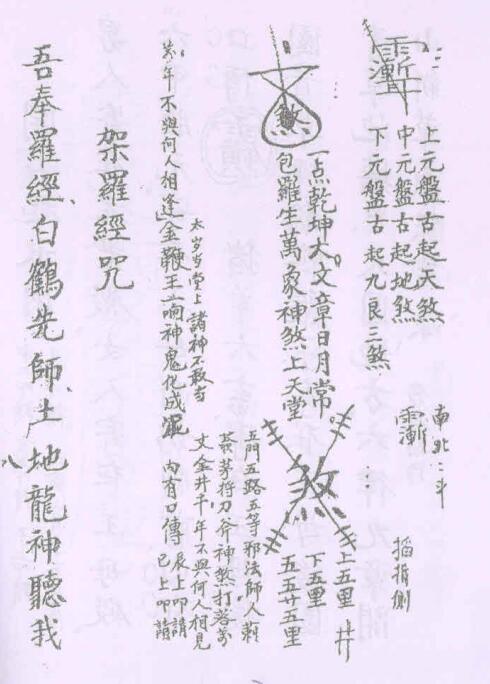 上元盤古起天煞
中元盤古起地煞
下元盤古起九良三煞
南北二斗
掐指側
一点乾坤大。文章日月常。
包羅生萬象神煞上天堂
煞
煞
上五里
下五里
五五廿五里
井
五門五路五等邪法師人
符刀斧神煞打落萬
丈金井千年不與何人相見
內有口傳
辰上叩請
巳上叩請
太岁当堂上諸神不敢当
年不與何人相逢金鞭王一响神鬼化成
架羅經咒
吾奉羅經、白鶴先師、土地龍神聽我
八